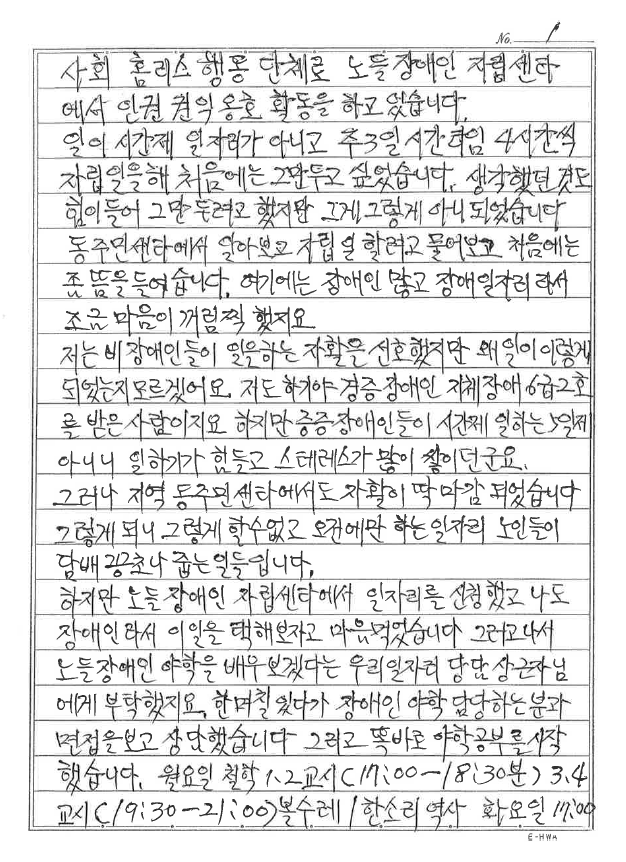 No. 1
사회 홈리스 행동 단체로 노들장애인 자립센타
에서 인권 권익 옹호 활동을 하고 있습니다.
일이 시간제 일자리가 아니고 주3일 시간타임 4시간씩
자립일을해 처음에는 그만두고 싶었습니다. 생각했던 것도
힘이들어 그만 두려고 했지만 그게그렇게 아니 되었습니다
동주민센타에서 알아보고 자립일 할려고 물어보고 처음에는
좀 뜸을들여습니다. 여기에는 장애인 많고 장애일자리 라서
조금 마음이 꺼림찍 했지요
저는 비장애인들이 일을하는 자활을 선호했지만 왜 일이 이렇게
되었는지모르겠어요. 저도하기야 경증장애인 지체장애 6급2호
를 받은 사람이지요 하지만 증증장애인들이 시간제 일하는 5일제
아니니 일하기가 힘들고 스테레스가 많이 쌓이던군요.
그러나 지역 동주민센타에서도 자활이 딱 마감 되었습니다
그렇게 되니 그렇게 할수없고 오전에만 하는일자리 노인들이
담배 꽁초나 줍는일들입니다.
하지만 노들 장애인 자립센타에서 일자리를 신청했고 나도
장애인라서 이일을 택해보자고 마음먹었습니다 그러고나서
노들장애인 야학을 배우보겠다는 우리일자리 담당 상근자님
에게 부탁했지요. 한며칠 있다가 장애인 야학 담당하는분과
면접을보고 상담했습니다 그리고 똑바로 야학공부를시작
했습니다. 월요일 철학 1.2교시(17:00-18:30분) 3.4
교시(19:30-21:00)볼수레 / 한소리 역사 화요일 17:00
E-HWA